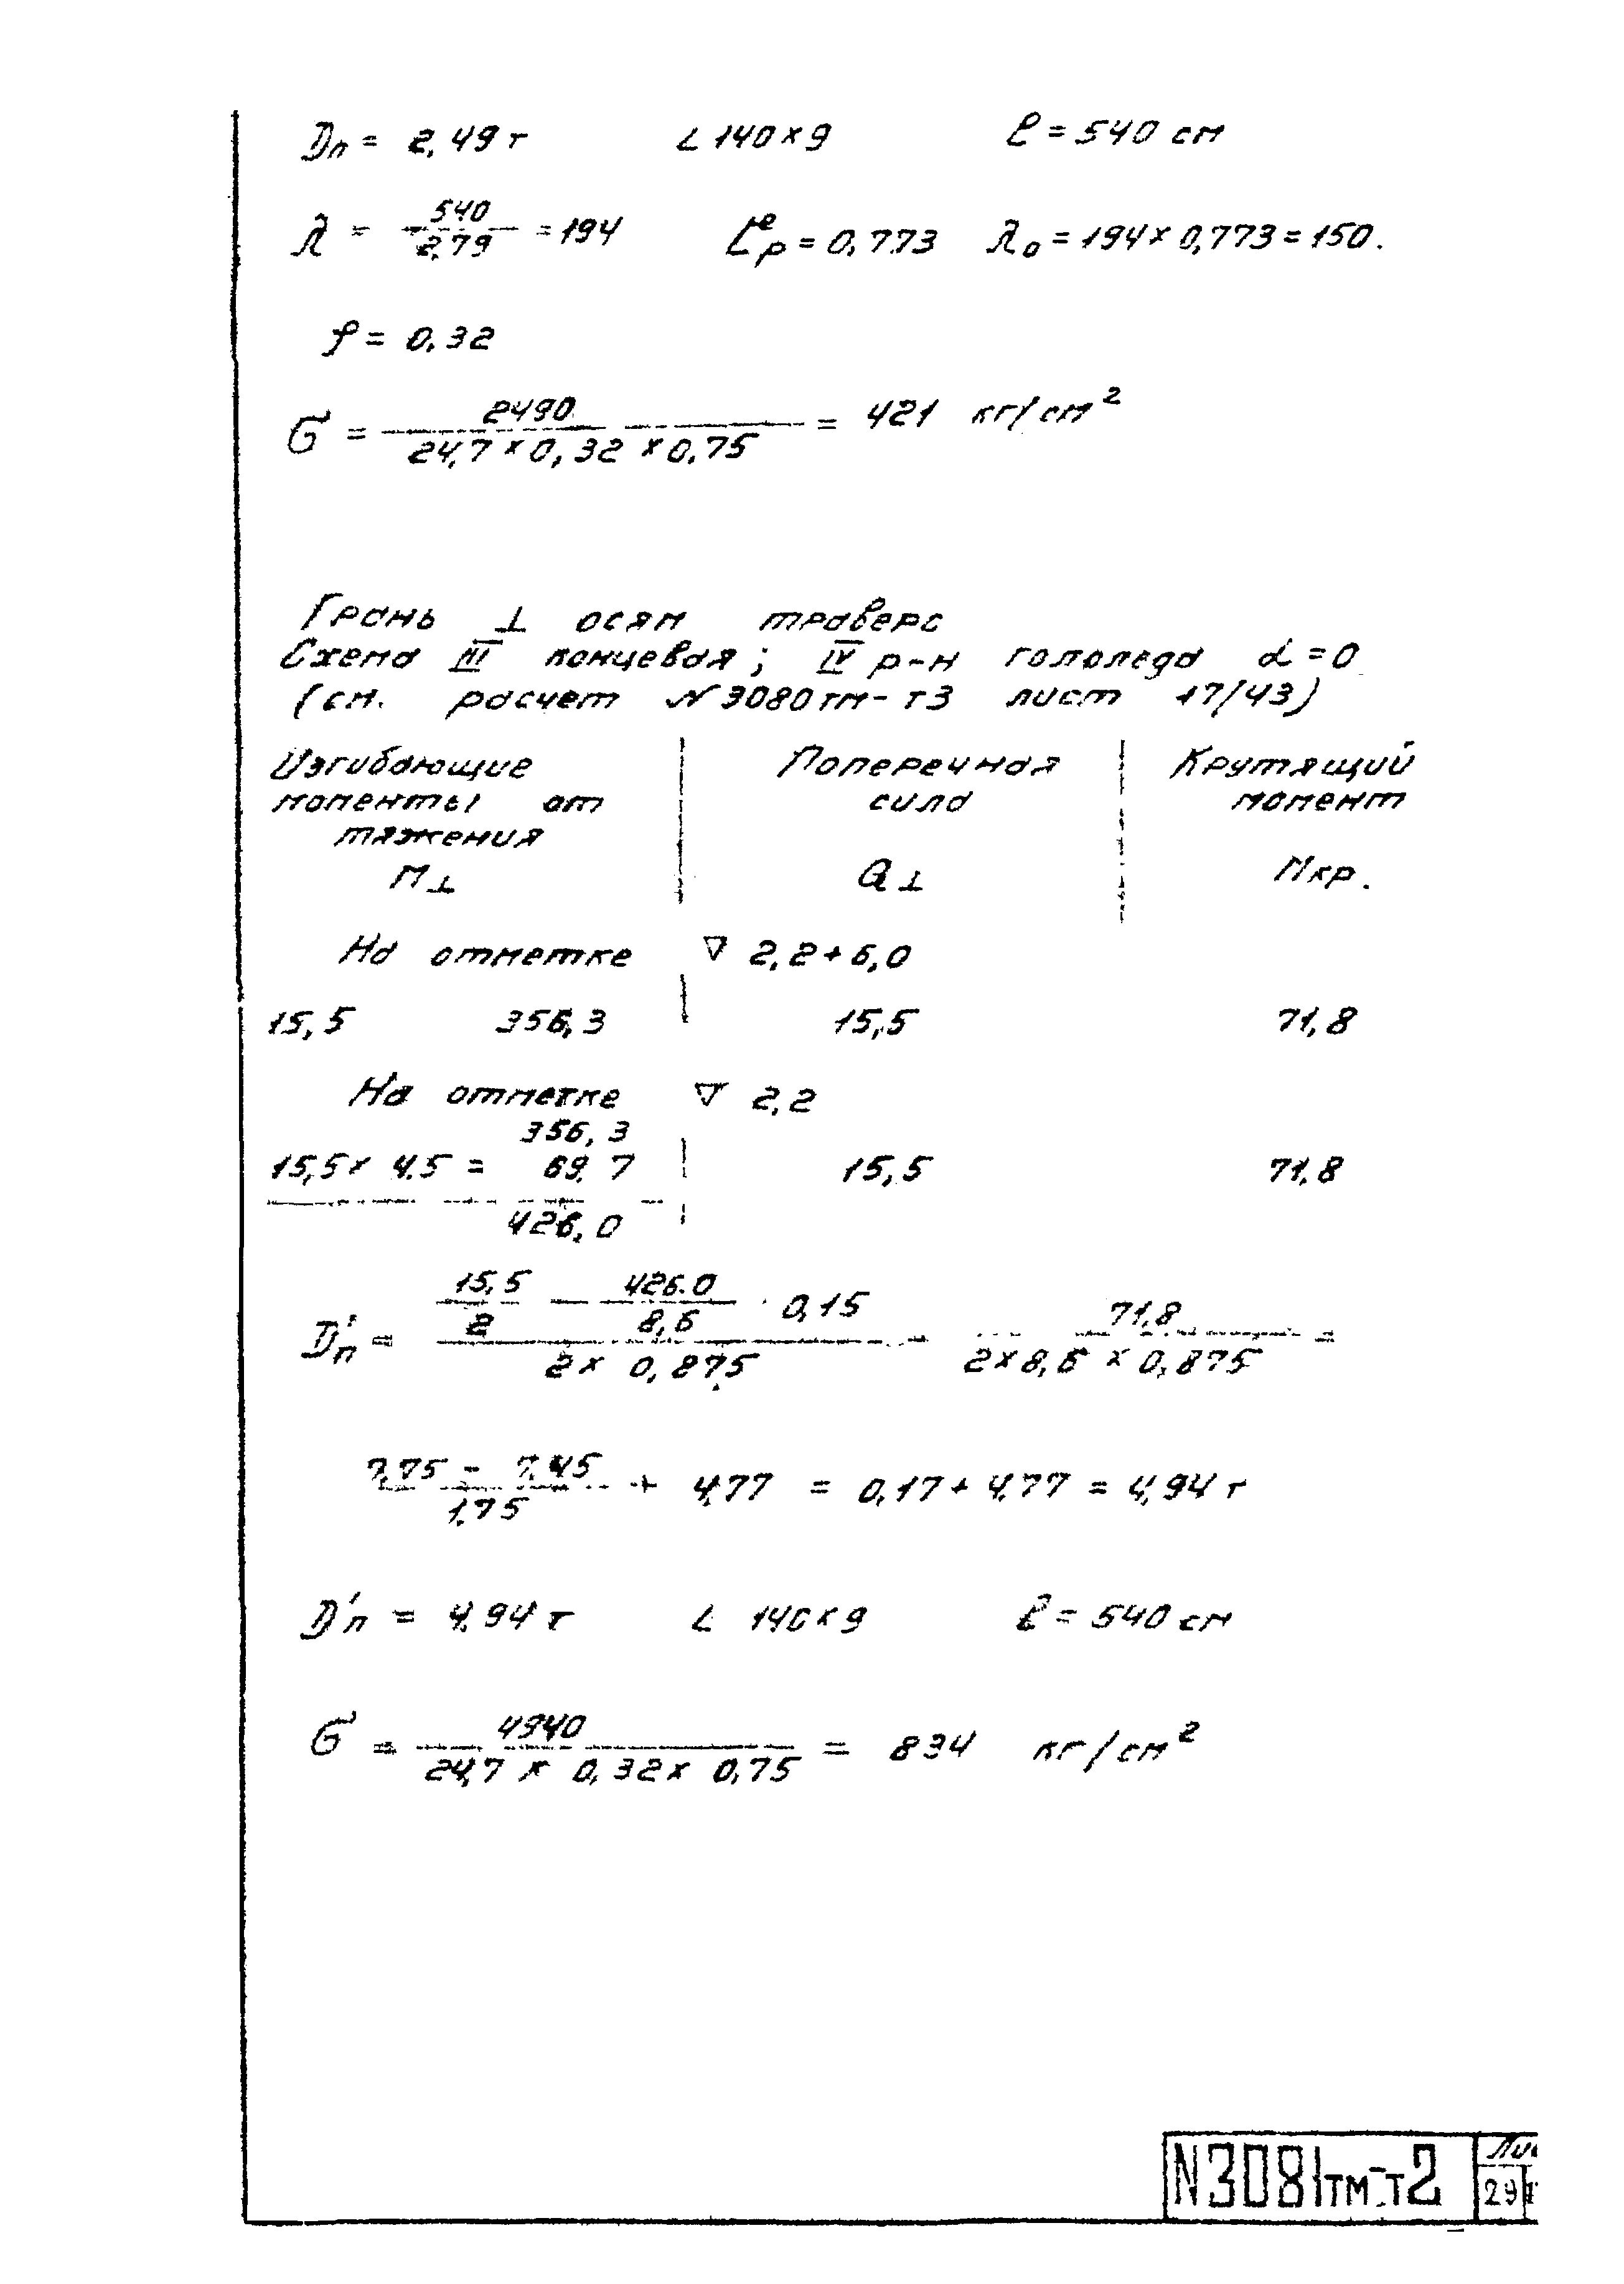 Dп = 2,49 т   L 140×9   ℓ = 540 см
λ = 540/2,79 = 194   = 0,773   λ₀ = 194 × 0,773 = 150.
φ = 0,32
σ = 2490/(24,7 × 0,32 × 0,75) = 421 кг/см²
Грань ⊥ осям траверс
Схема III концевая; IV р-н гололеда α = 0
(см. расчет N 3080тм-т3 лист 17/43)
Изгибающие моменты от тяжения M⊥ | Поперечная сила Q⊥ | Крутящий момент Mкр.
На отметке ▽ 2,2 + 6,0
15,5   356,3 | 15,5   71,8
На отметке ▽ 2,2
356,3
15,5 × 4,5 = 69,7 | 15,5   71,8
426,0
D'п = (15,5/2 − 426,0/8,6 · 0,15)/(2 × 0,875) − 71,8/(2 × 8,6 × 0,875) =
(7,75 − 7,45)/1,75 + 4,77 = 0,17 + 4,77 = 4,94 т
D'п = 4,94 т   L 140×9   ℓ = 540 см
σ = 4940/(24,7 × 0,32 × 0,75) = 834 кг/см²
N3081тм-т2
29